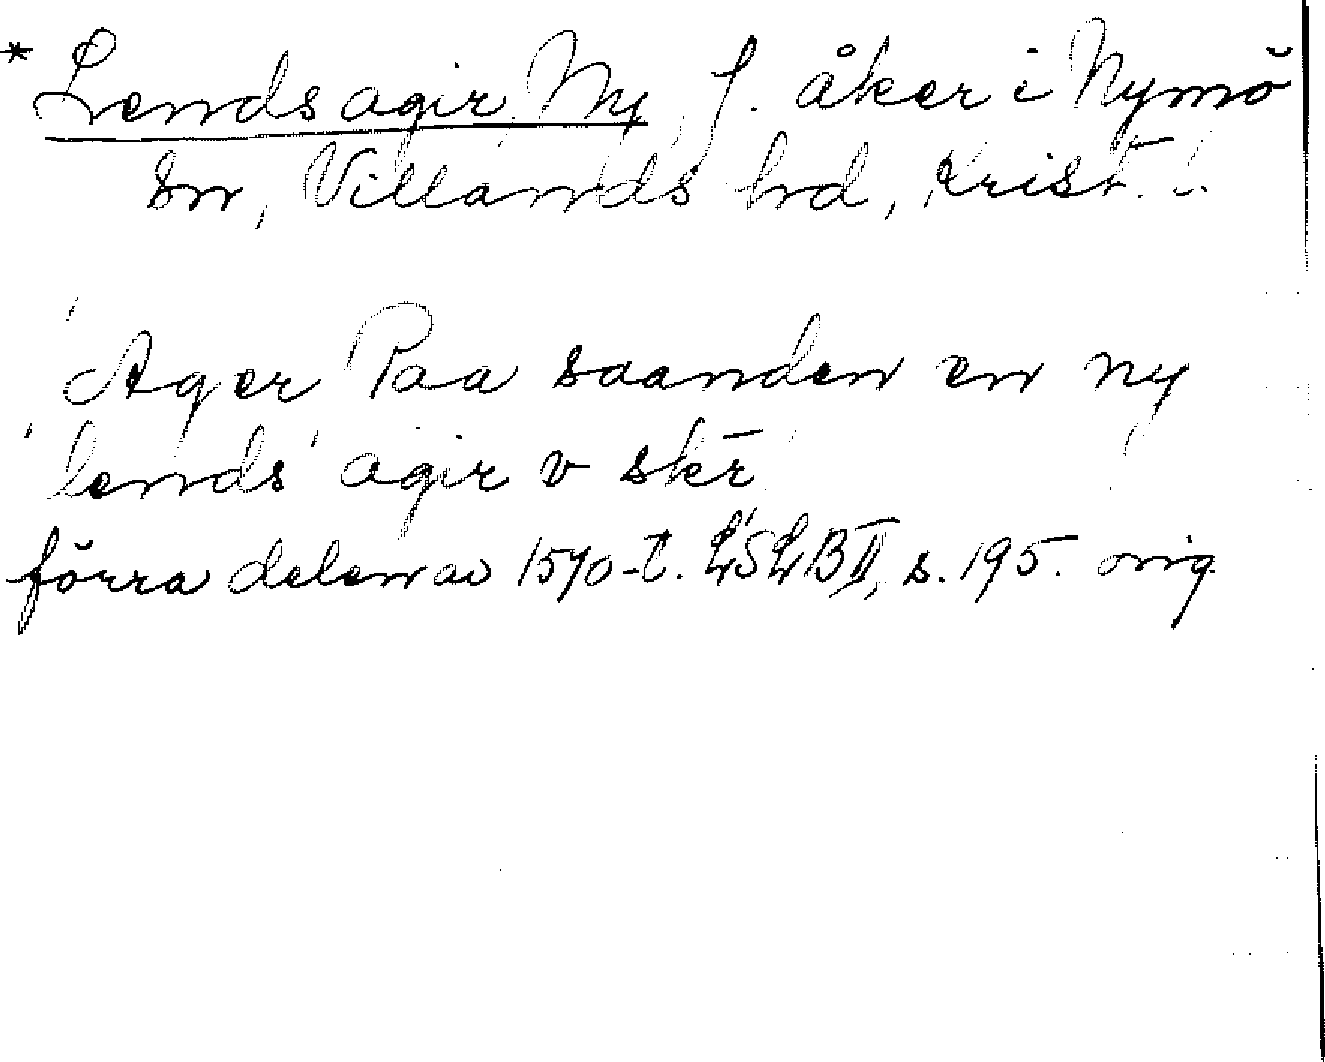 * Lendsagir, Ny, f. åker i Nymö
sn, Villands hd, Krist. l.
Ager Paa saanden en ny
lends agir v skr̄
förra delen av 1570-t. LSLB II, s. 195. orig